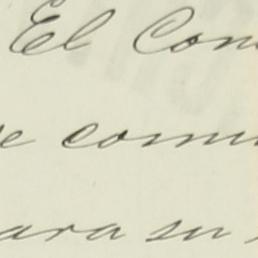 El Com
e comu
ara su